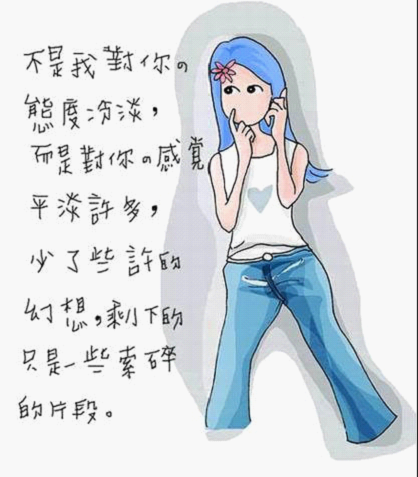 不是我對你の
態度冷淡，
而是對你の感覺
平淡許多，
少了些許的
幻想，剩下的
只是一些索碎
的片段。